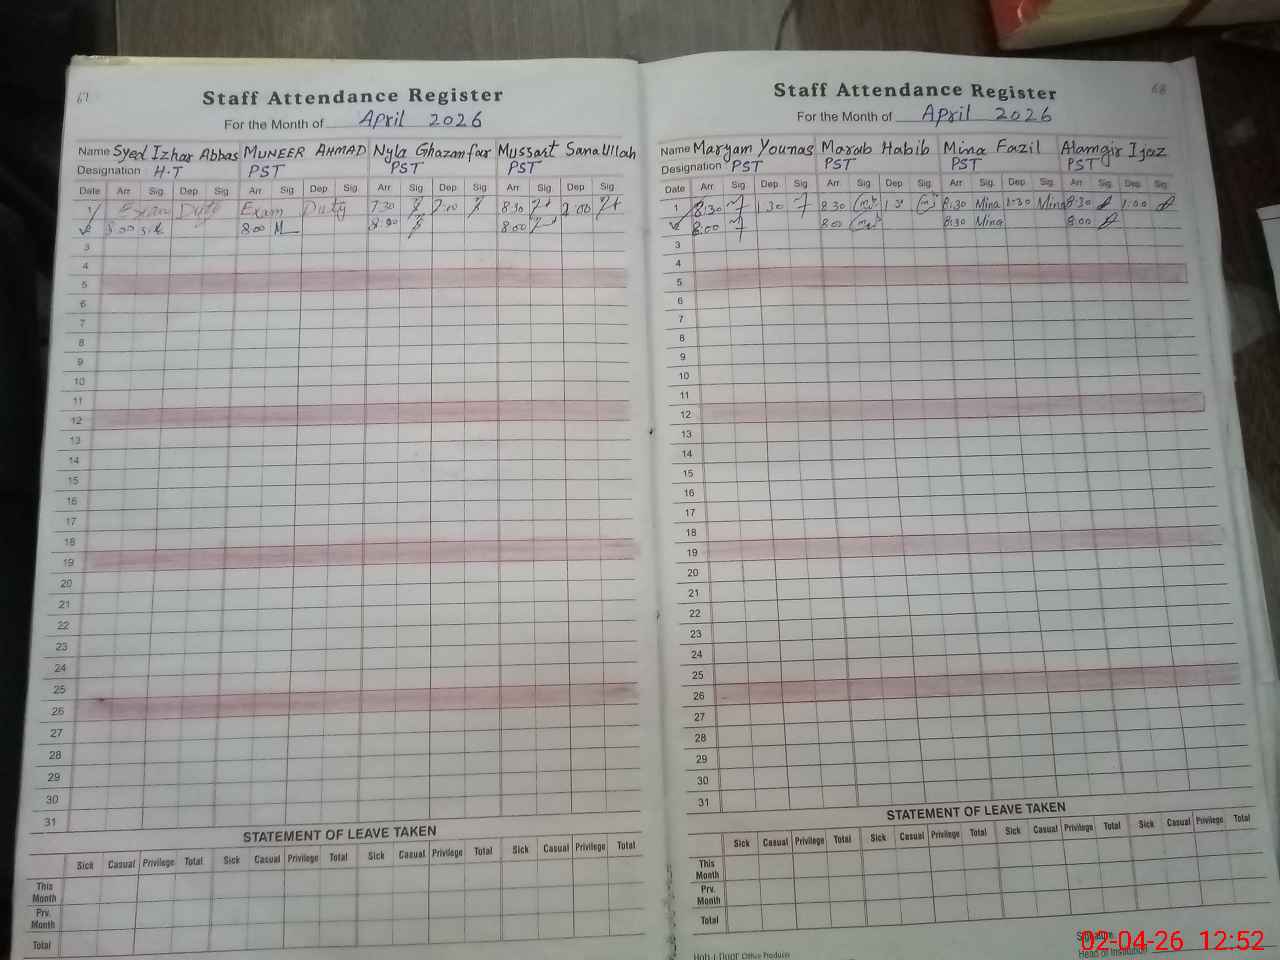 67
Staff Attendance Register
For the Month of April 2026
Name Syed Izhar Abbas MUNEER AHMAD Nyla Ghazanfar Mussart Sana Ullah
Designation H.T PST PST PST
Date Arr Sig. Dep Sig. Arr Sig Dep Sig. Arr Sig. Dep Sig. Arr Sig. Dep Sig.
1 Exam Duty Exam Duty 7:30 8:30
8:00 8:00 8:00
3
4
5
6
7
8
9
10
11
12
13
14
15
16
17
18
19
20
21
22
23
24
25
26
27
28
29
30
31
STATEMENT OF LEAVE TAKEN
Sick Casual Privilege Total Sick Casual Privilege Total Sick Casual Privilege Total Sick Casual Privilege Total
This Month
Prv. Month
Total
68
Staff Attendance Register
For the Month of April 2026
Name Maryam Younas Marab Habib Mina Fazil Alamgir Ijaz
Designation PST PST PST PST
Date Arr Sig. Dep Sig. Arr Sig. Dep Sig. Arr Sig. Dep Sig. Arr Sig. Dep Sig.
1 8:30 1:30 8:30 8:30 Mina 1:30 Mina 8:30 1:00
8:00 8:00 8:30 Mina 8:00
3
4
5
6
7
8
9
10
11
12
13
14
15
16
17
18
19
20
21
22
23
24
25
26
27
28
29
30
31
STATEMENT OF LEAVE TAKEN
Sick Casual Privilege Total Sick Casual Privilege Total Sick Casual Privilege Total Sick Casual Privilege Total
This Month
Prv. Month
Total
Office Products
Signature
Head of Institution
02-04-26 12:52